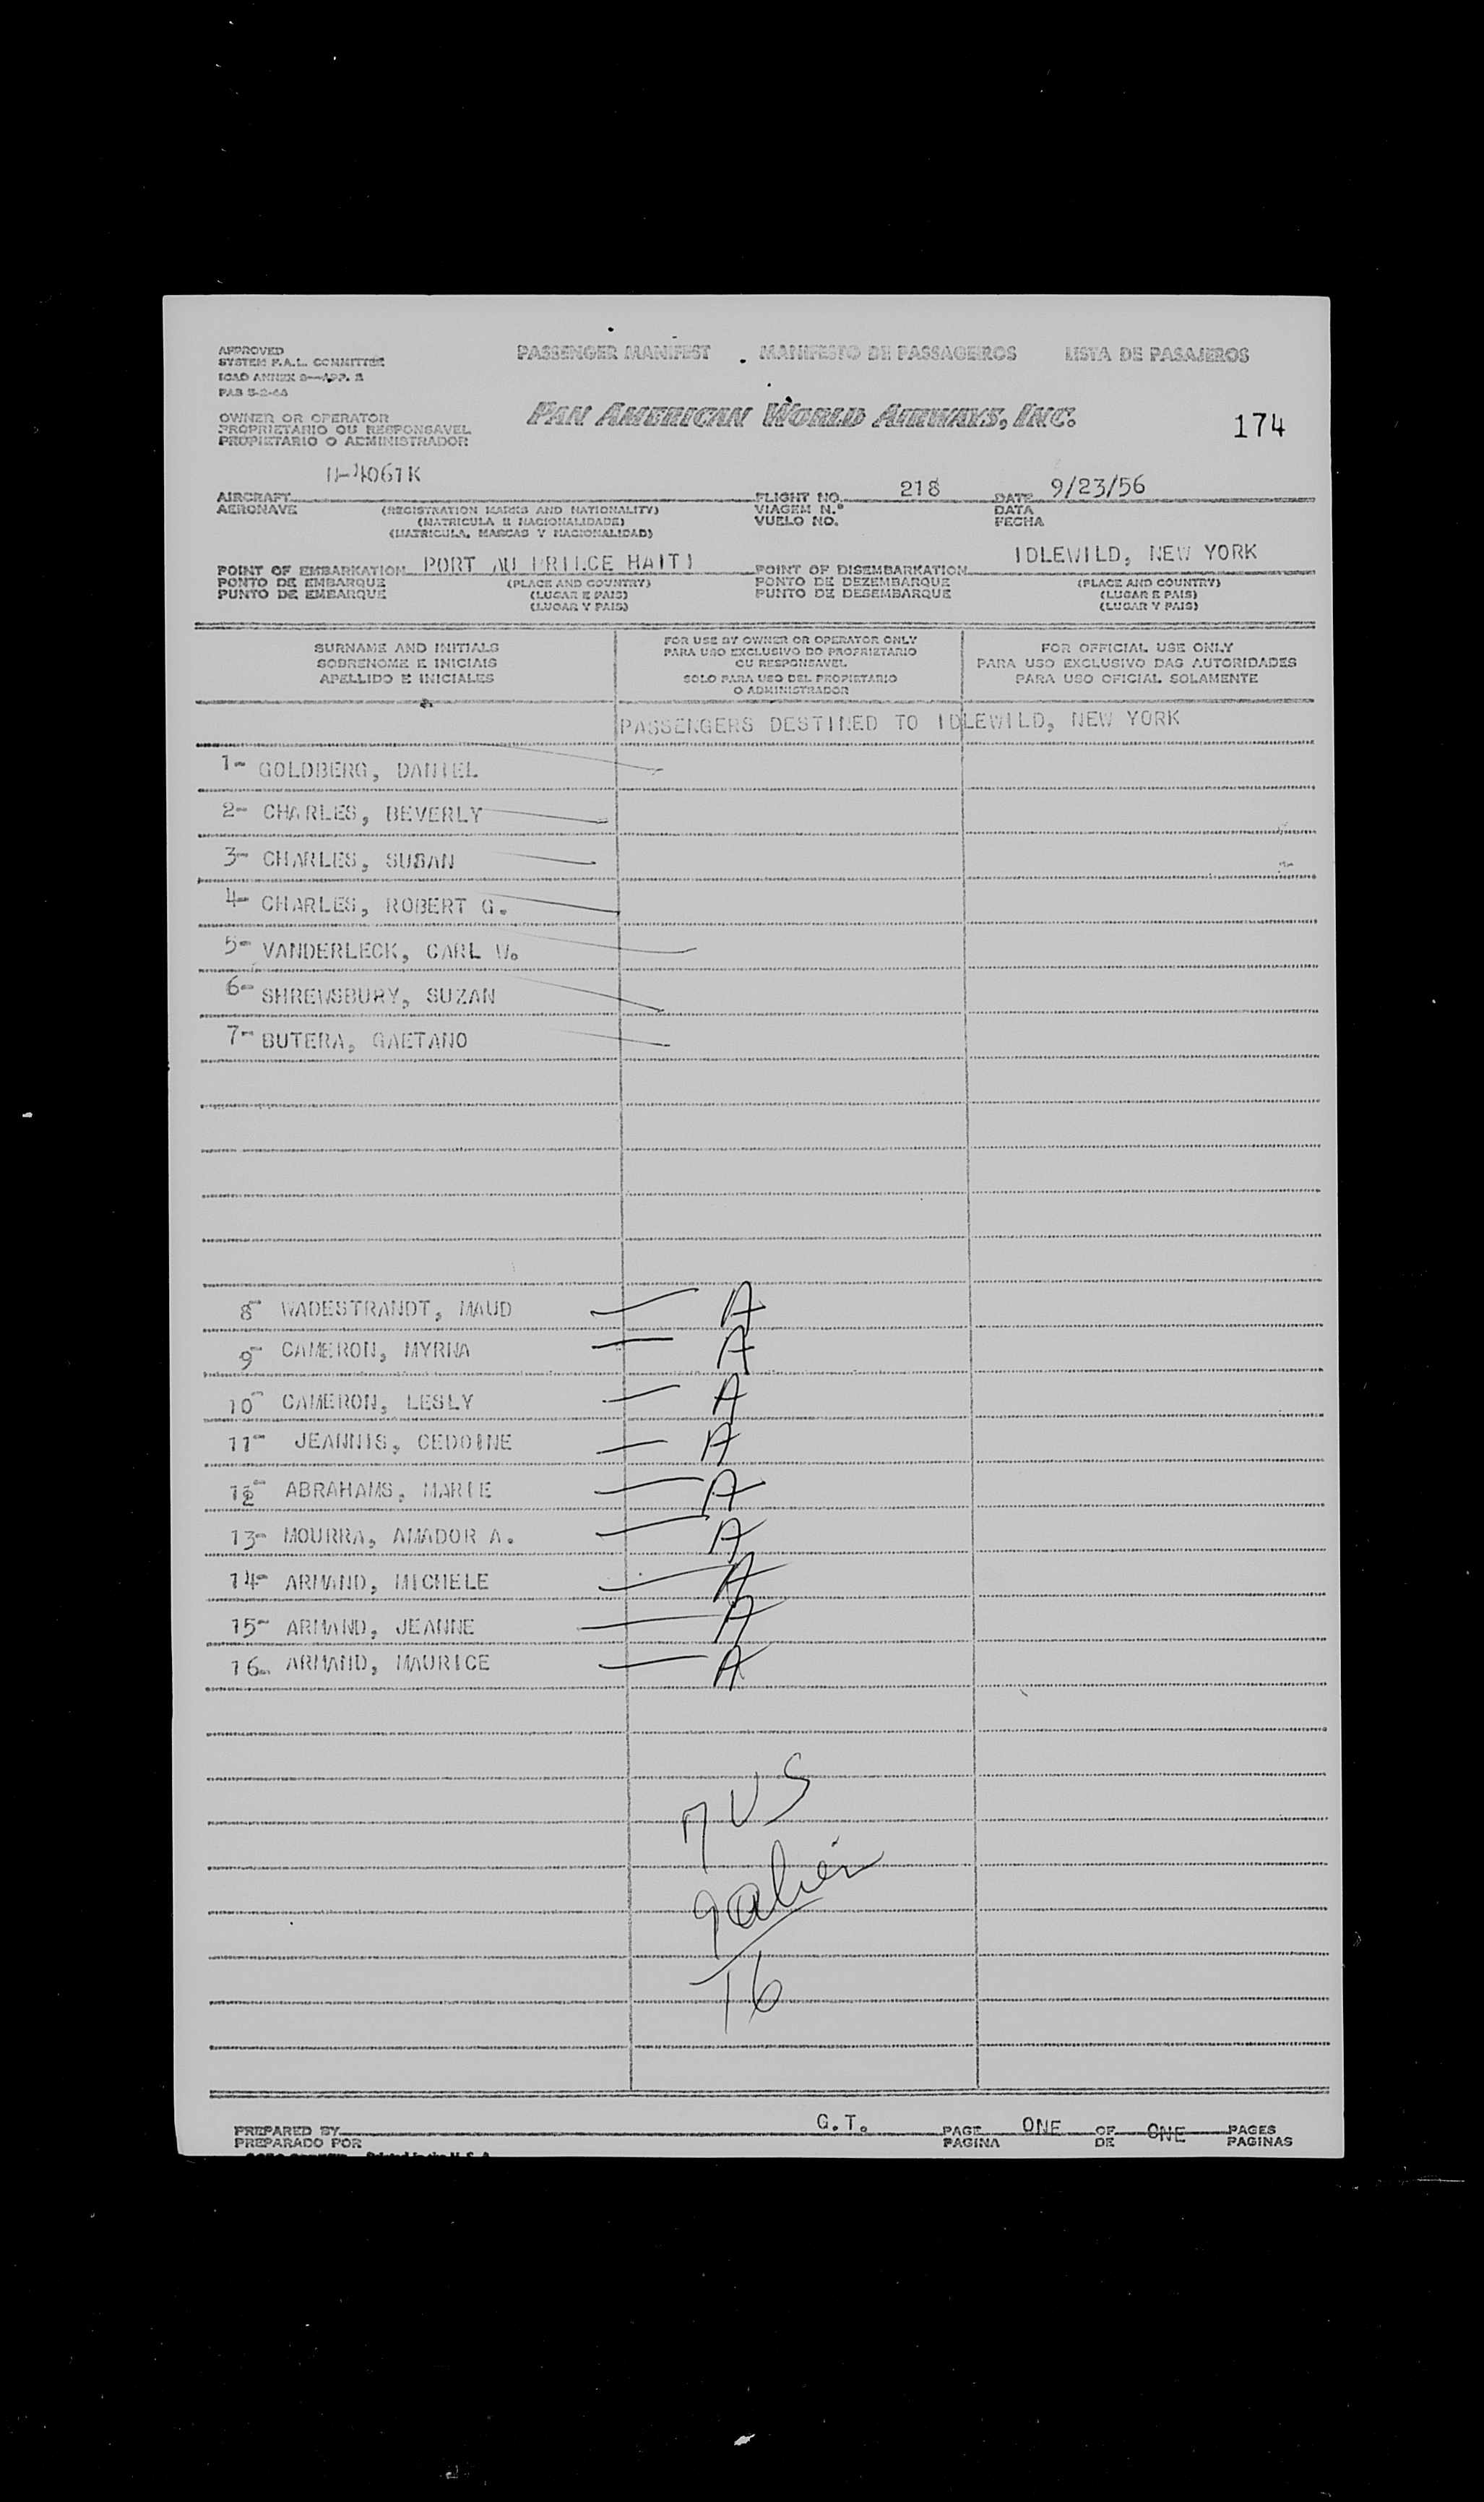 APPROVED
SYSTEM F.A.L. COMMITTEE
ICAO ANNEX 9—APP. 3
PASSENGER MANIFEST MANIFESTO DE PASSAGEIROS LISTA DE PASAJEROS
OWNER OR OPERATOR
PROPRIETARIO OU RESPONSAVEL
PROPIETARIO O ADMINISTRADOR
PAN AMERICAN WORLD AIRWAYS, INC.
174
N-4061K
AIRCRAFT FLIGHT NO. 218 DATE 9/23/56
AERONAVE (REGISTRATION MARKS AND NATIONALITY) VIAGEM N.º DATA
(MATRICULA E NACIONALIDADE) VUELO NO. FECHA
(MATRICULA, MARCAS Y NACIONALIDAD)
POINT OF EMBARKATION PORT AU PRINCE HAITI POINT OF DISEMBARKATION IDLEWILD, NEW YORK
PONTO DE EMBARQUE (PLACE AND COUNTRY) PONTO DE DEZEMBARQUE (PLACE AND COUNTRY)
PUNTO DE EMBARQUE (LUGAR E PAIS) PUNTO DE DESEMBARQUE (LUGAR E PAIS)
(LUGAR Y PAIS) (LUGAR Y PAIS)
SURNAME AND INITIALS
SOBRENOME E INICIAIS
APELLIDO E INICIALES
FOR USE BY OWNER OR OPERATOR ONLY
PARA USO EXCLUSIVO DO PROPRIETARIO
OU RESPONSAVEL
SOLO PARA USO DEL PROPIETARIO
O ADMINISTRADOR
FOR OFFICIAL USE ONLY
PARA USO EXCLUSIVO DAS AUTORIDADES
PARA USO OFICIAL SOLAMENTE
PASSENGERS DESTINED TO IDLEWILD, NEW YORK
1- GOLDBERG, DANIEL
2- CHARLES, BEVERLY
3- CHARLES, SUSAN
4- CHARLES, ROBERT G.
5- VANDERLECK, CARL W.
6- SHREWSBURY, SUZAN
7- BUTERA, GAETANO
8- WADESTRANDT, MAUD — A
9- CAMERON, MYRNA — A
10- CAMERON, LESLY — A
11- JEANNIS, CEDOINE — A
12- ABRAHAMS, MARIE — A
13- MOURRA, AMADOR A. — A
14- ARMAND, MICHELE — A
15- ARMAND, JEANNE — A
16- ARMAND, MAURICE — A
7 US
9 alien
16
PREPARED BY G.T. PAGE ONE OF ONE PAGES
PREPARADO POR PAGINA DE PAGINAS